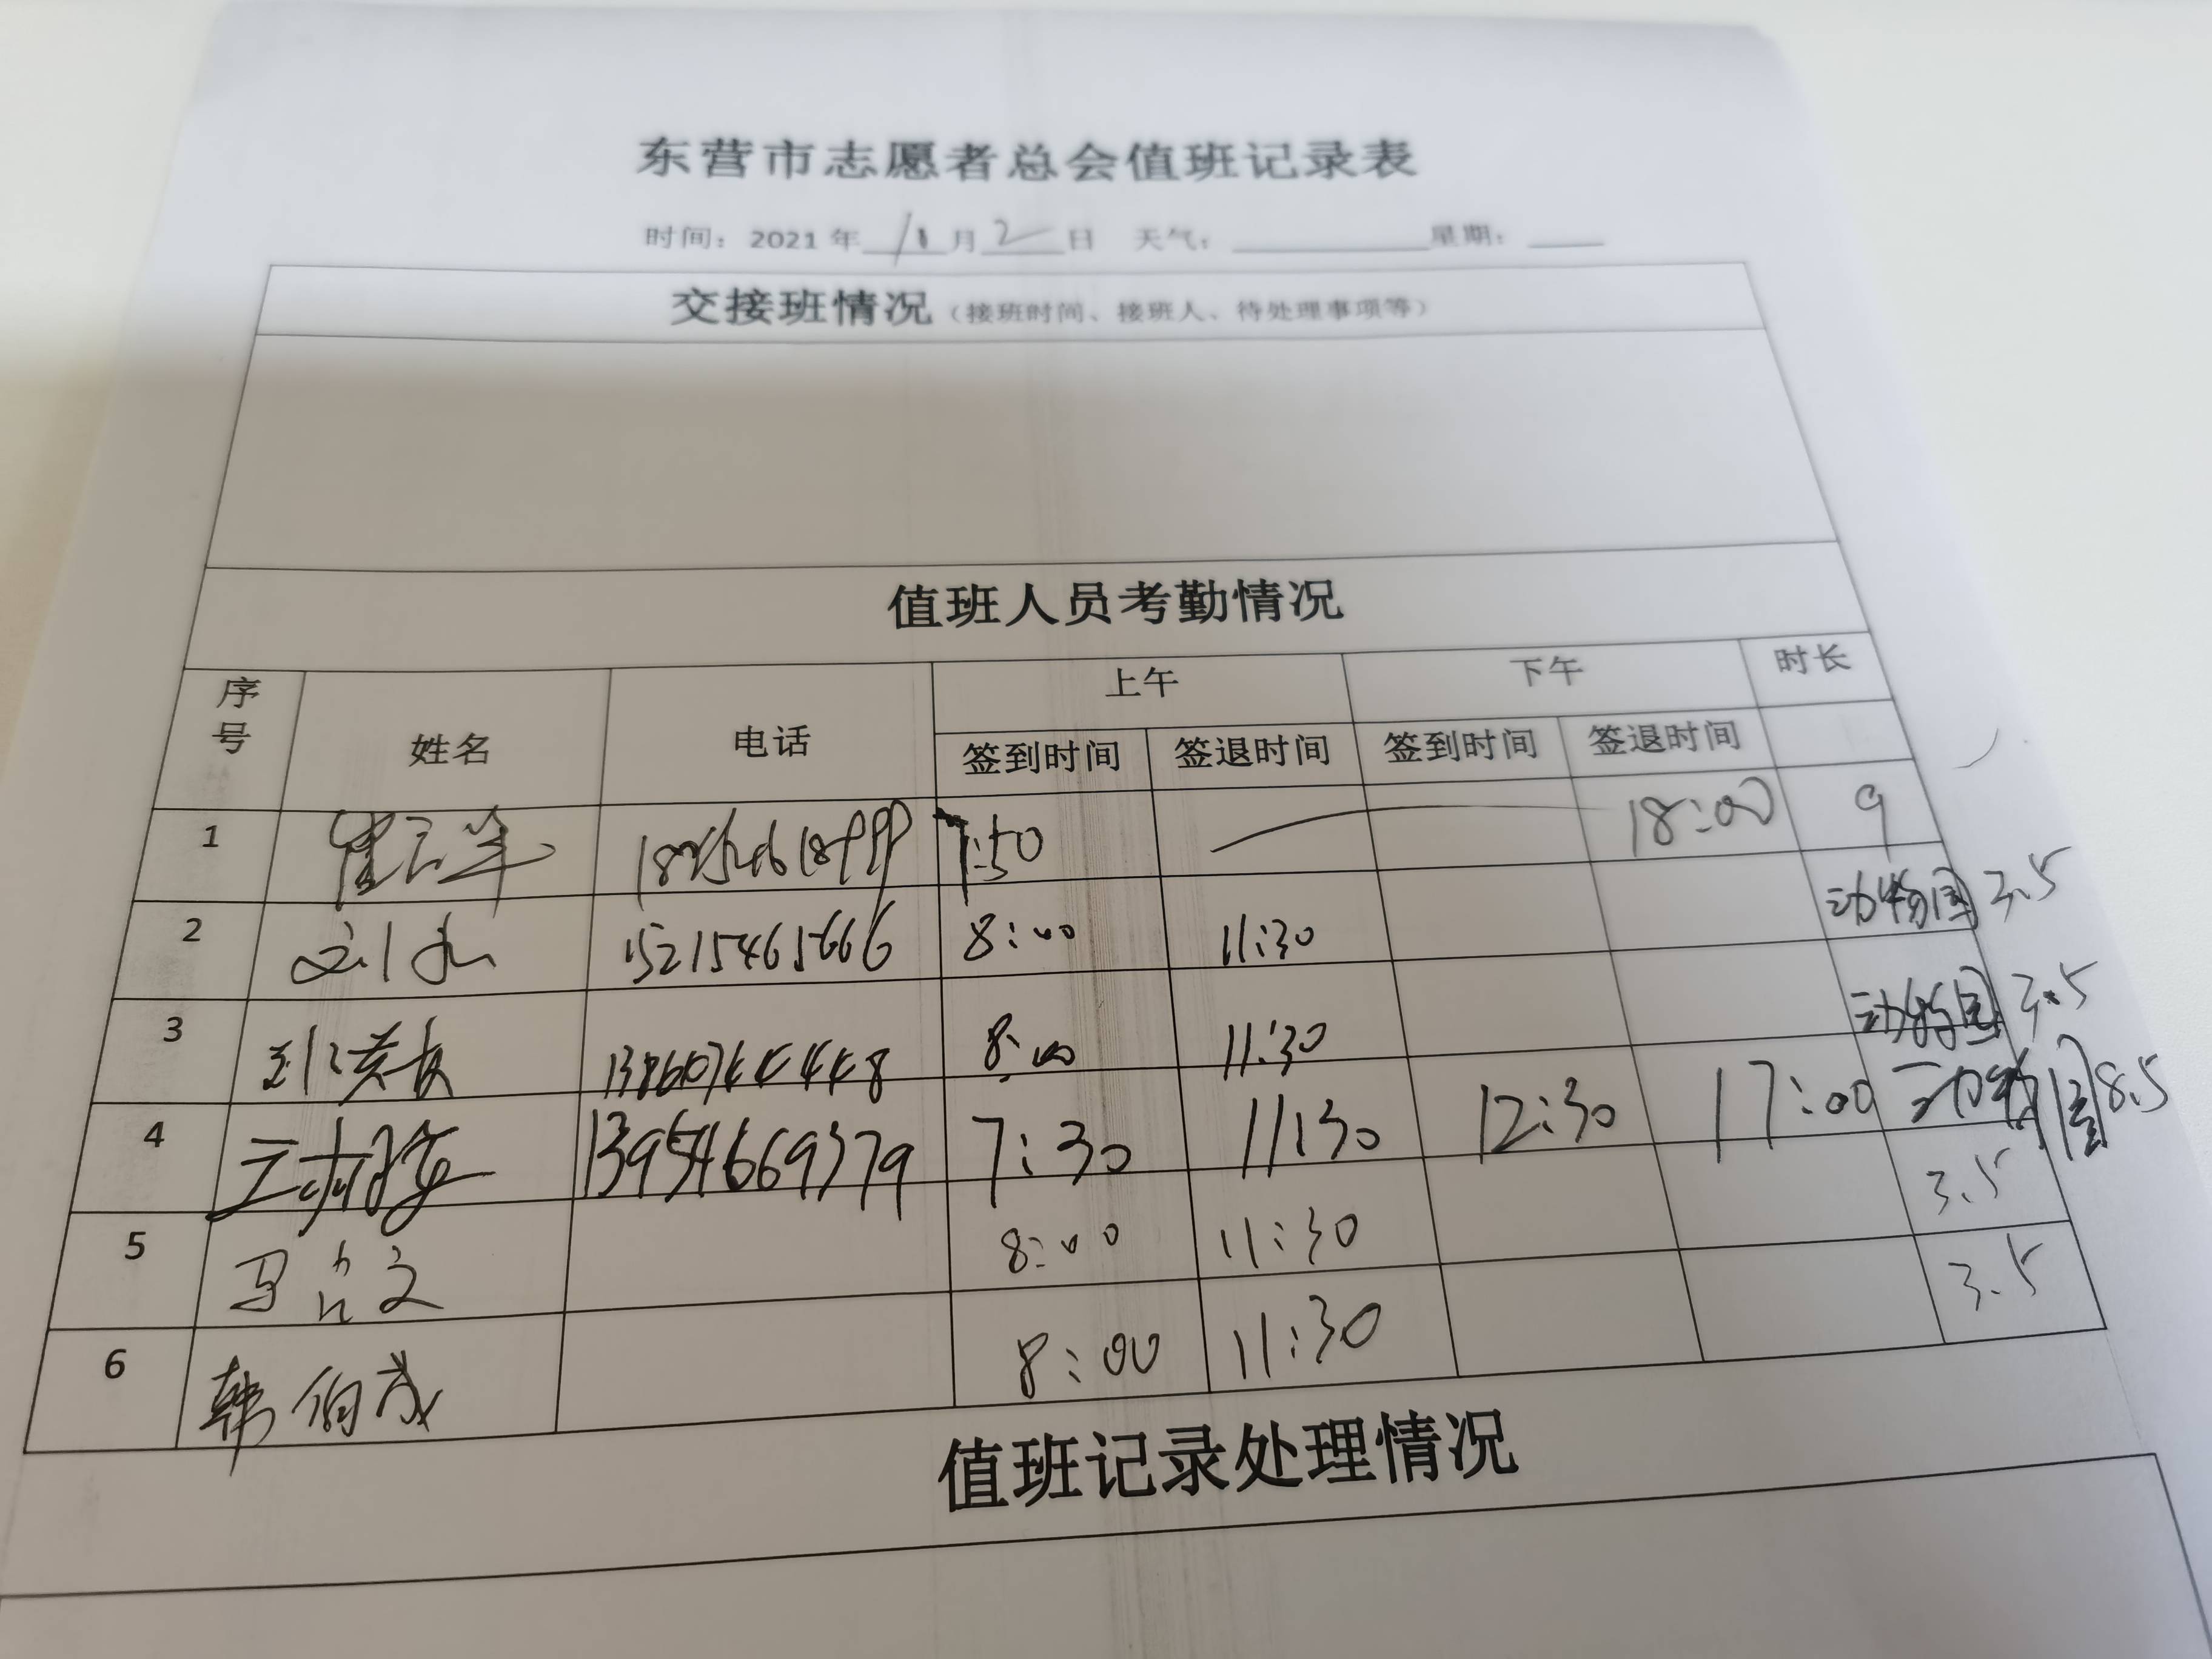 东营市志愿者总会值班记录表
时间：2021年 11 月 2 日 天气： 星期：
交接班情况（接班时间、接班人、待处理事项等）
值班人员考勤情况
序号 姓名 电话 上午 下午 时长
签到时间 签退时间 签到时间 签退时间
1 7:50 18:00 9
2 152154615666 8:00 11:30 动物园 3.5
3 8:00 11:30 动物园 3.5
4 13954669379 7:30 11:30 12:30 17:00 动物园 8.5
5 马 文 8:00 11:30 3.5
6 韩伯成 8:00 11:30 3.5
值班记录处理情况